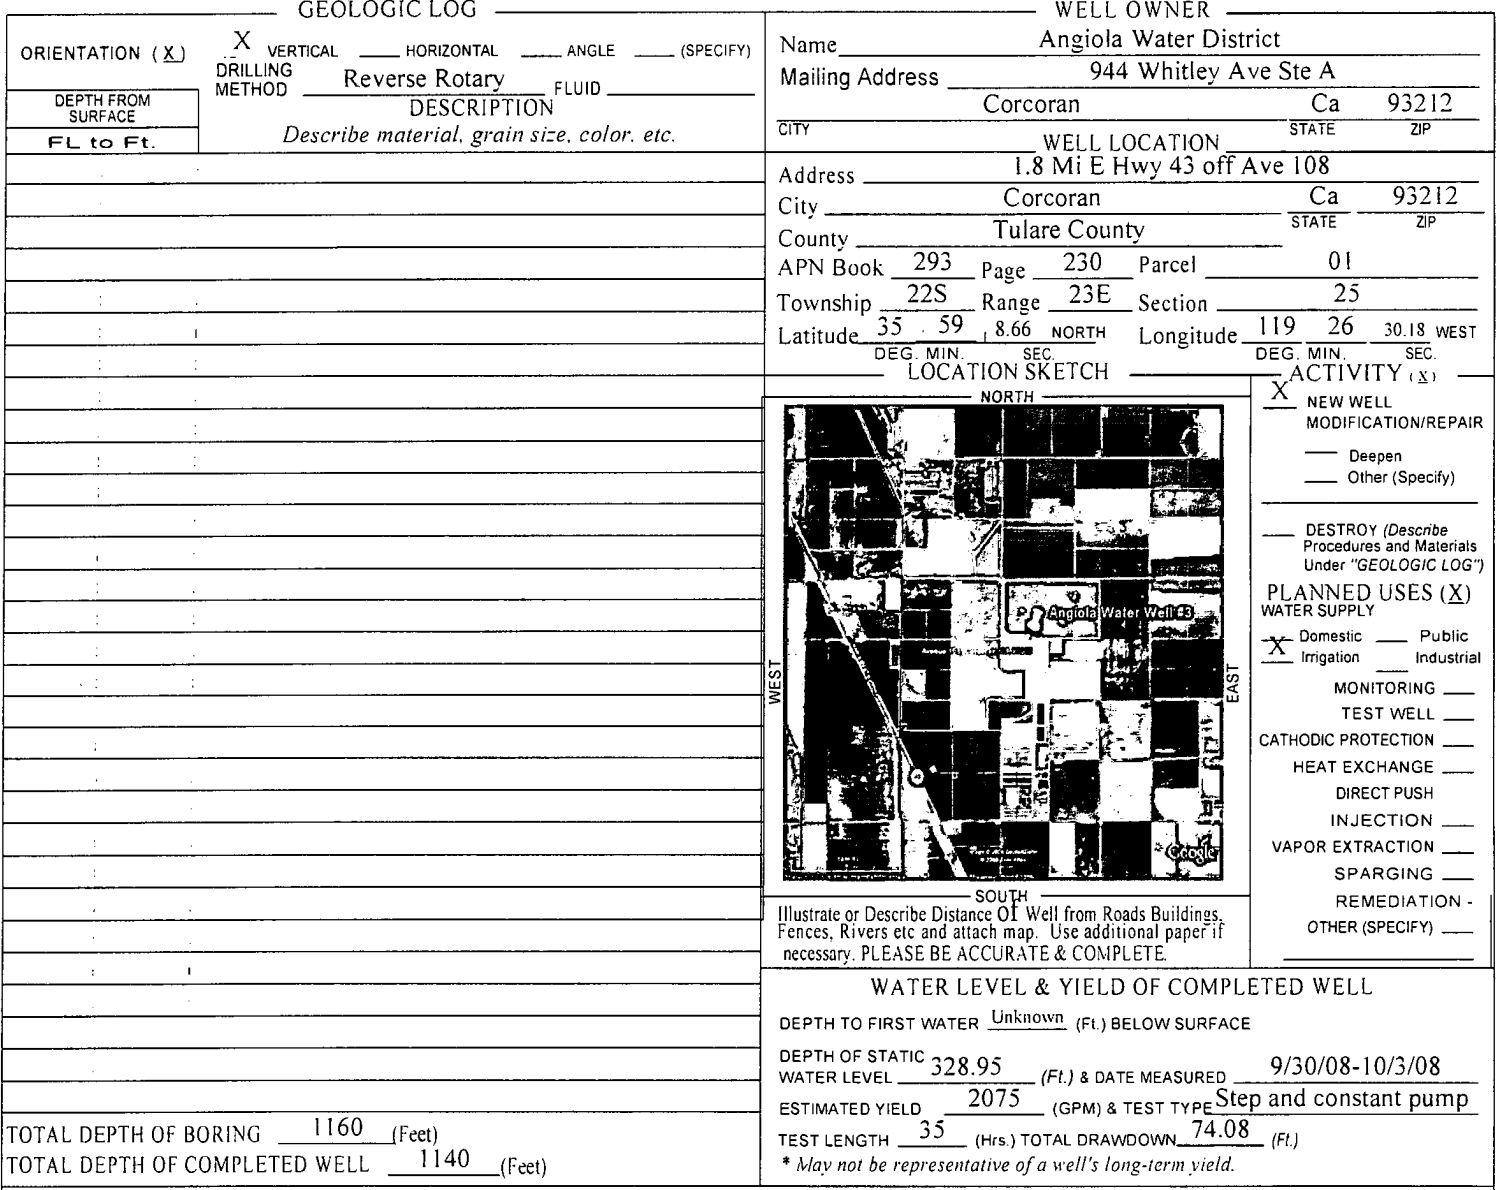 GEOLOGIC LOG
ORIENTATION (X) X VERTICAL HORIZONTAL ANGLE (SPECIFY)
DRILLING METHOD Reverse Rotary FLUID
DEPTH FROM SURFACE
DESCRIPTION
FL to Ft.
Describe material, grain size, color, etc.
TOTAL DEPTH OF BORING 1160 (Feet)
TOTAL DEPTH OF COMPLETED WELL 1140 (Feet)
WELL OWNER
Name Angiola Water District
Mailing Address 944 Whitley Ave Ste A
Corcoran Ca 93212
CITY STATE ZIP
WELL LOCATION
Address 1.8 Mi E Hwy 43 off Ave 108
City Corcoran Ca 93212
STATE ZIP
County Tulare County
APN Book 293 Page 230 Parcel 01
Township 22S Range 23E Section 25
Latitude 35 59 8.66 NORTH Longitude 119 26 30.18 WEST
DEG. MIN. SEC. DEG. MIN. SEC.
LOCATION SKETCH
NORTH
WEST
Angiola Water Well #3
EAST
Google
SOUTH
Illustrate or Describe Distance Of Well from Roads Buildings,
Fences, Rivers etc and attach map. Use additional paper if
necessary. PLEASE BE ACCURATE & COMPLETE.
ACTIVITY (X)
X NEW WELL
MODIFICATION/REPAIR
Deepen
Other (Specify)
DESTROY (Describe
Procedures and Materials
Under "GEOLOGIC LOG")
PLANNED USES (X)
WATER SUPPLY
Domestic Public
X Irrigation Industrial
MONITORING
TEST WELL
CATHODIC PROTECTION
HEAT EXCHANGE
DIRECT PUSH
INJECTION
VAPOR EXTRACTION
SPARGING
REMEDIATION -
OTHER (SPECIFY)
WATER LEVEL & YIELD OF COMPLETED WELL
DEPTH TO FIRST WATER Unknown (Ft.) BELOW SURFACE
DEPTH OF STATIC
WATER LEVEL 328.95 (Ft.) & DATE MEASURED 9/30/08-10/3/08
ESTIMATED YIELD 2075 (GPM) & TEST TYPE Step and constant pump
TEST LENGTH 35 (Hrs.) TOTAL DRAWDOWN 74.08 (Ft.)
* May not be representative of a well's long-term yield.